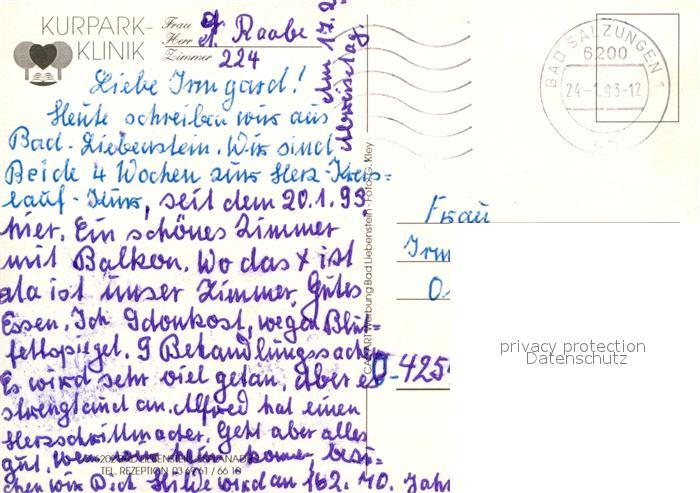 KURPARK-
KLINIK
Frau
Herr A. Raabe
Zimmer 224
Am 17.2
Abreisetag.
Liebe Irmgard!
Heute schreiben wir aus
Bad-Liebenstein. Wir sind
Beide 4 Wochen zur Herz-Kreis-
lauf-Kur, seit dem 20.1.93
hier. Ein schönes Zimmer
mit Balkon. Wo das x ist
da ist unser Zimmer. Gutes
Essen. Ich Schonkost, wegen Blut-
fettspiegel. 9 Behandlungssachen
Es wird sehr viel getan. Aber es
strengt auch an. Alfred hat einen
Herzschrittmacher. Geht aber alles
gut. wenn wir heim kommen besu-
chen wir Dich. Hilde wird am 16.2. 70. Jahr
TEL. REZEPTION 03 69 61 / 66 10
Werbung Bad Liebenstein - Foto: G. Kley
BAD SALZUNGEN 1
6200
24-1.93-12
Frau
Irm
O
D-425
privacy protection
Datenschutz